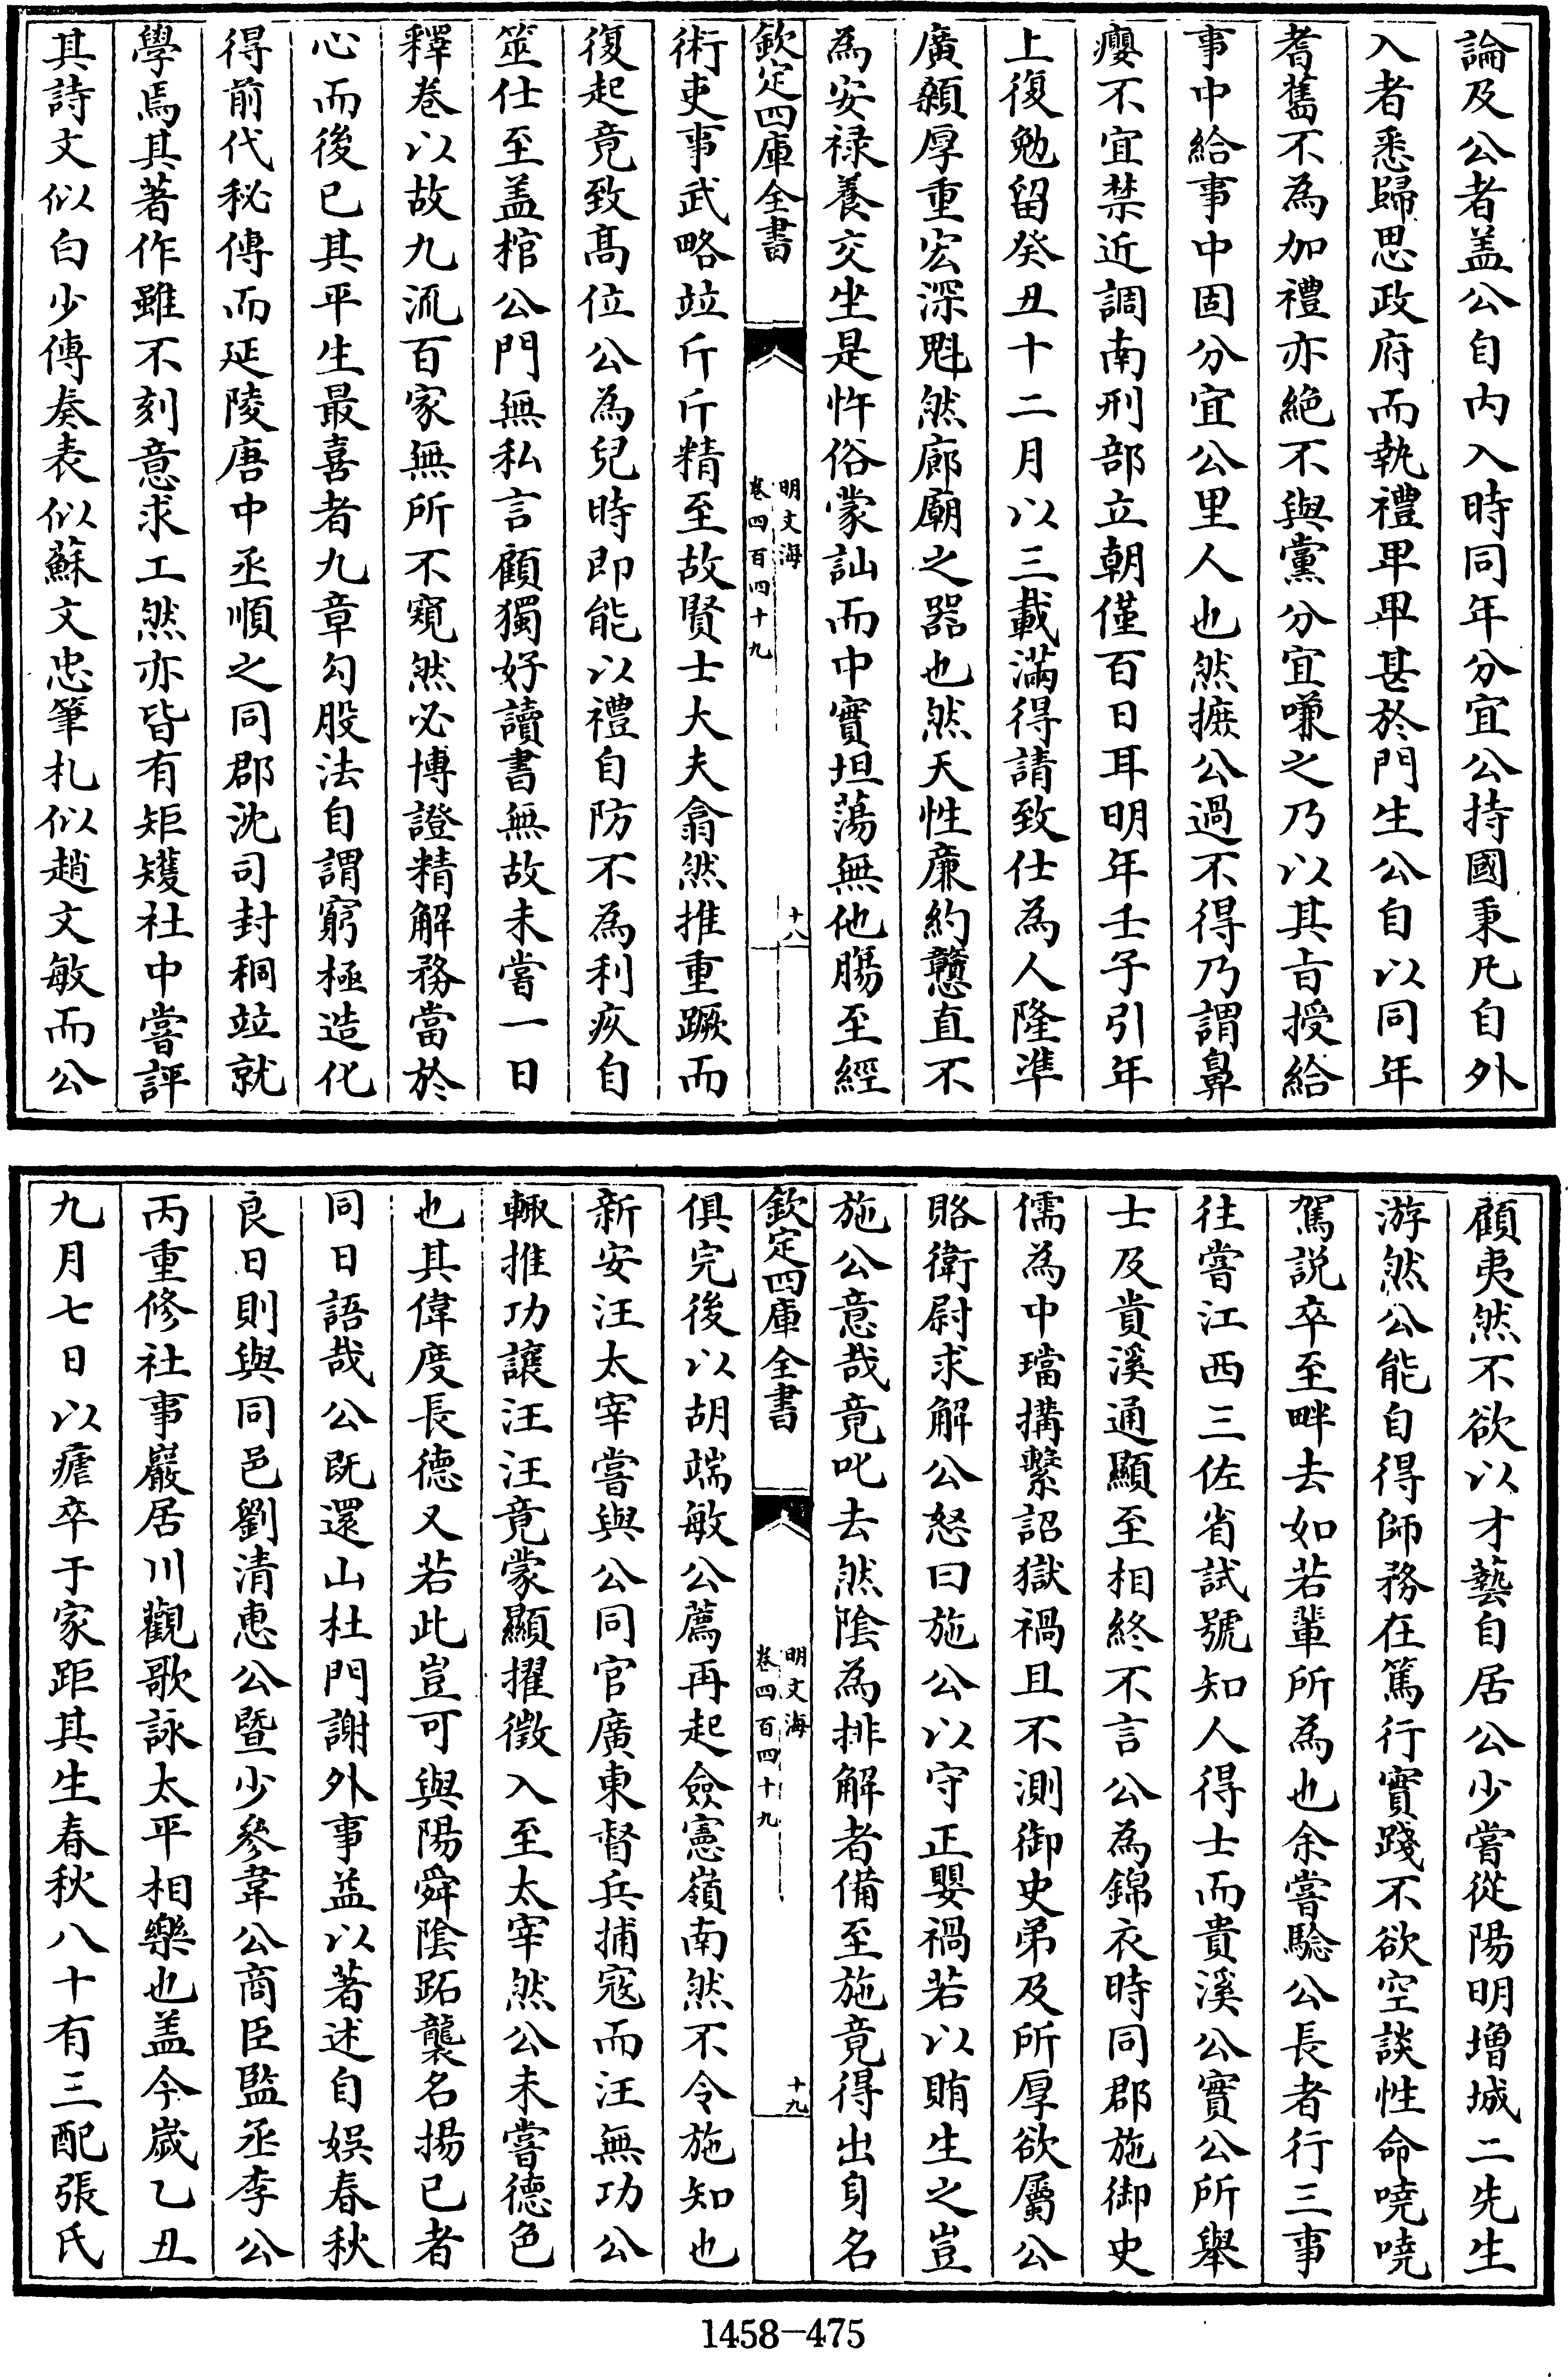 論及公者盖公自内入時同年分宜公持國秉凡自外
入者悉歸思政府而執禮卑卑甚於門生公自以同年
耆舊不為加禮亦絶不與黨分宜嗛之乃以其㫖授給
事中給事中固分宜公里人也然摭公過不得乃謂鼻
癭不宜禁近調南刑部立朝僅百日耳明年壬子引年
上復勉留癸丑十二月以三載滿得請致仕為人隆準
廣顙厚重宏深魁然廊廟之器也然天性廉約戇直不
為安禄養交坐是忤俗蒙訕而中實坦蕩無他膓至經
欽定四庫全書
明文海
卷四百四十九
十八
術吏事武略竝斤斤精至故賢士大夫翕然推重蹶而
復起竟致髙位公為兒時即能以禮自防不為利疚自
筮仕至盖棺公門無私言顧獨好讀書無故未嘗一日
釋卷以故九流百家無所不窺然必博證精解務當於
心而後已其平生最喜者九章勾股法自謂窮極造化
得前代秘傳而延陵唐中丞順之同郡沈司封稠竝就
學焉其著作雖不刻意求工然亦皆有矩矱社中嘗評
其詩文似白少傅奏表似蘇文忠筆札似趙文敏而公
顧夷然不欲以才藝自居公少嘗從陽明增城二先生
游然公能自得師務在篤行實踐不欲空談性命嘵嘵
駕説卒至畔去如若輩所為也余嘗騐公長者行三事
往嘗江西三佐省試號知人得士而貴溪公實公所舉
士及貴溪通顯至相終不言公為錦衣時同郡施御史
儒為中璫搆繫詔獄禍且不測御史弟及所厚欲屬公
賂衛尉求解公怒曰施公以守正嬰禍若以賄生之豈
施公意哉竟叱去然陰為排解者備至施竟得出身名
欽定四庫全書
明文海
卷四百四十九
十九
俱完後以胡端敏公薦再起僉憲嶺南然不令施知也
新安汪太宰嘗與公同官廣東督兵捕寇而汪無功公
輙推功讓汪汪竟蒙顯擢徵入至太宰然公未嘗德色
也其偉度長德又若此豈可與陽舜陰跖襲名揚己者
同日語哉公既還山杜門謝外事益以著述自娱春秋
良日則與同邑劉清惠公暨少參韋公商臣監丞李公
丙重修社事巖居川觀歌詠太平相樂也盖今嵗乙丑
九月七日以瘧卒于家距其生春秋八十有三配張氏
1458-475